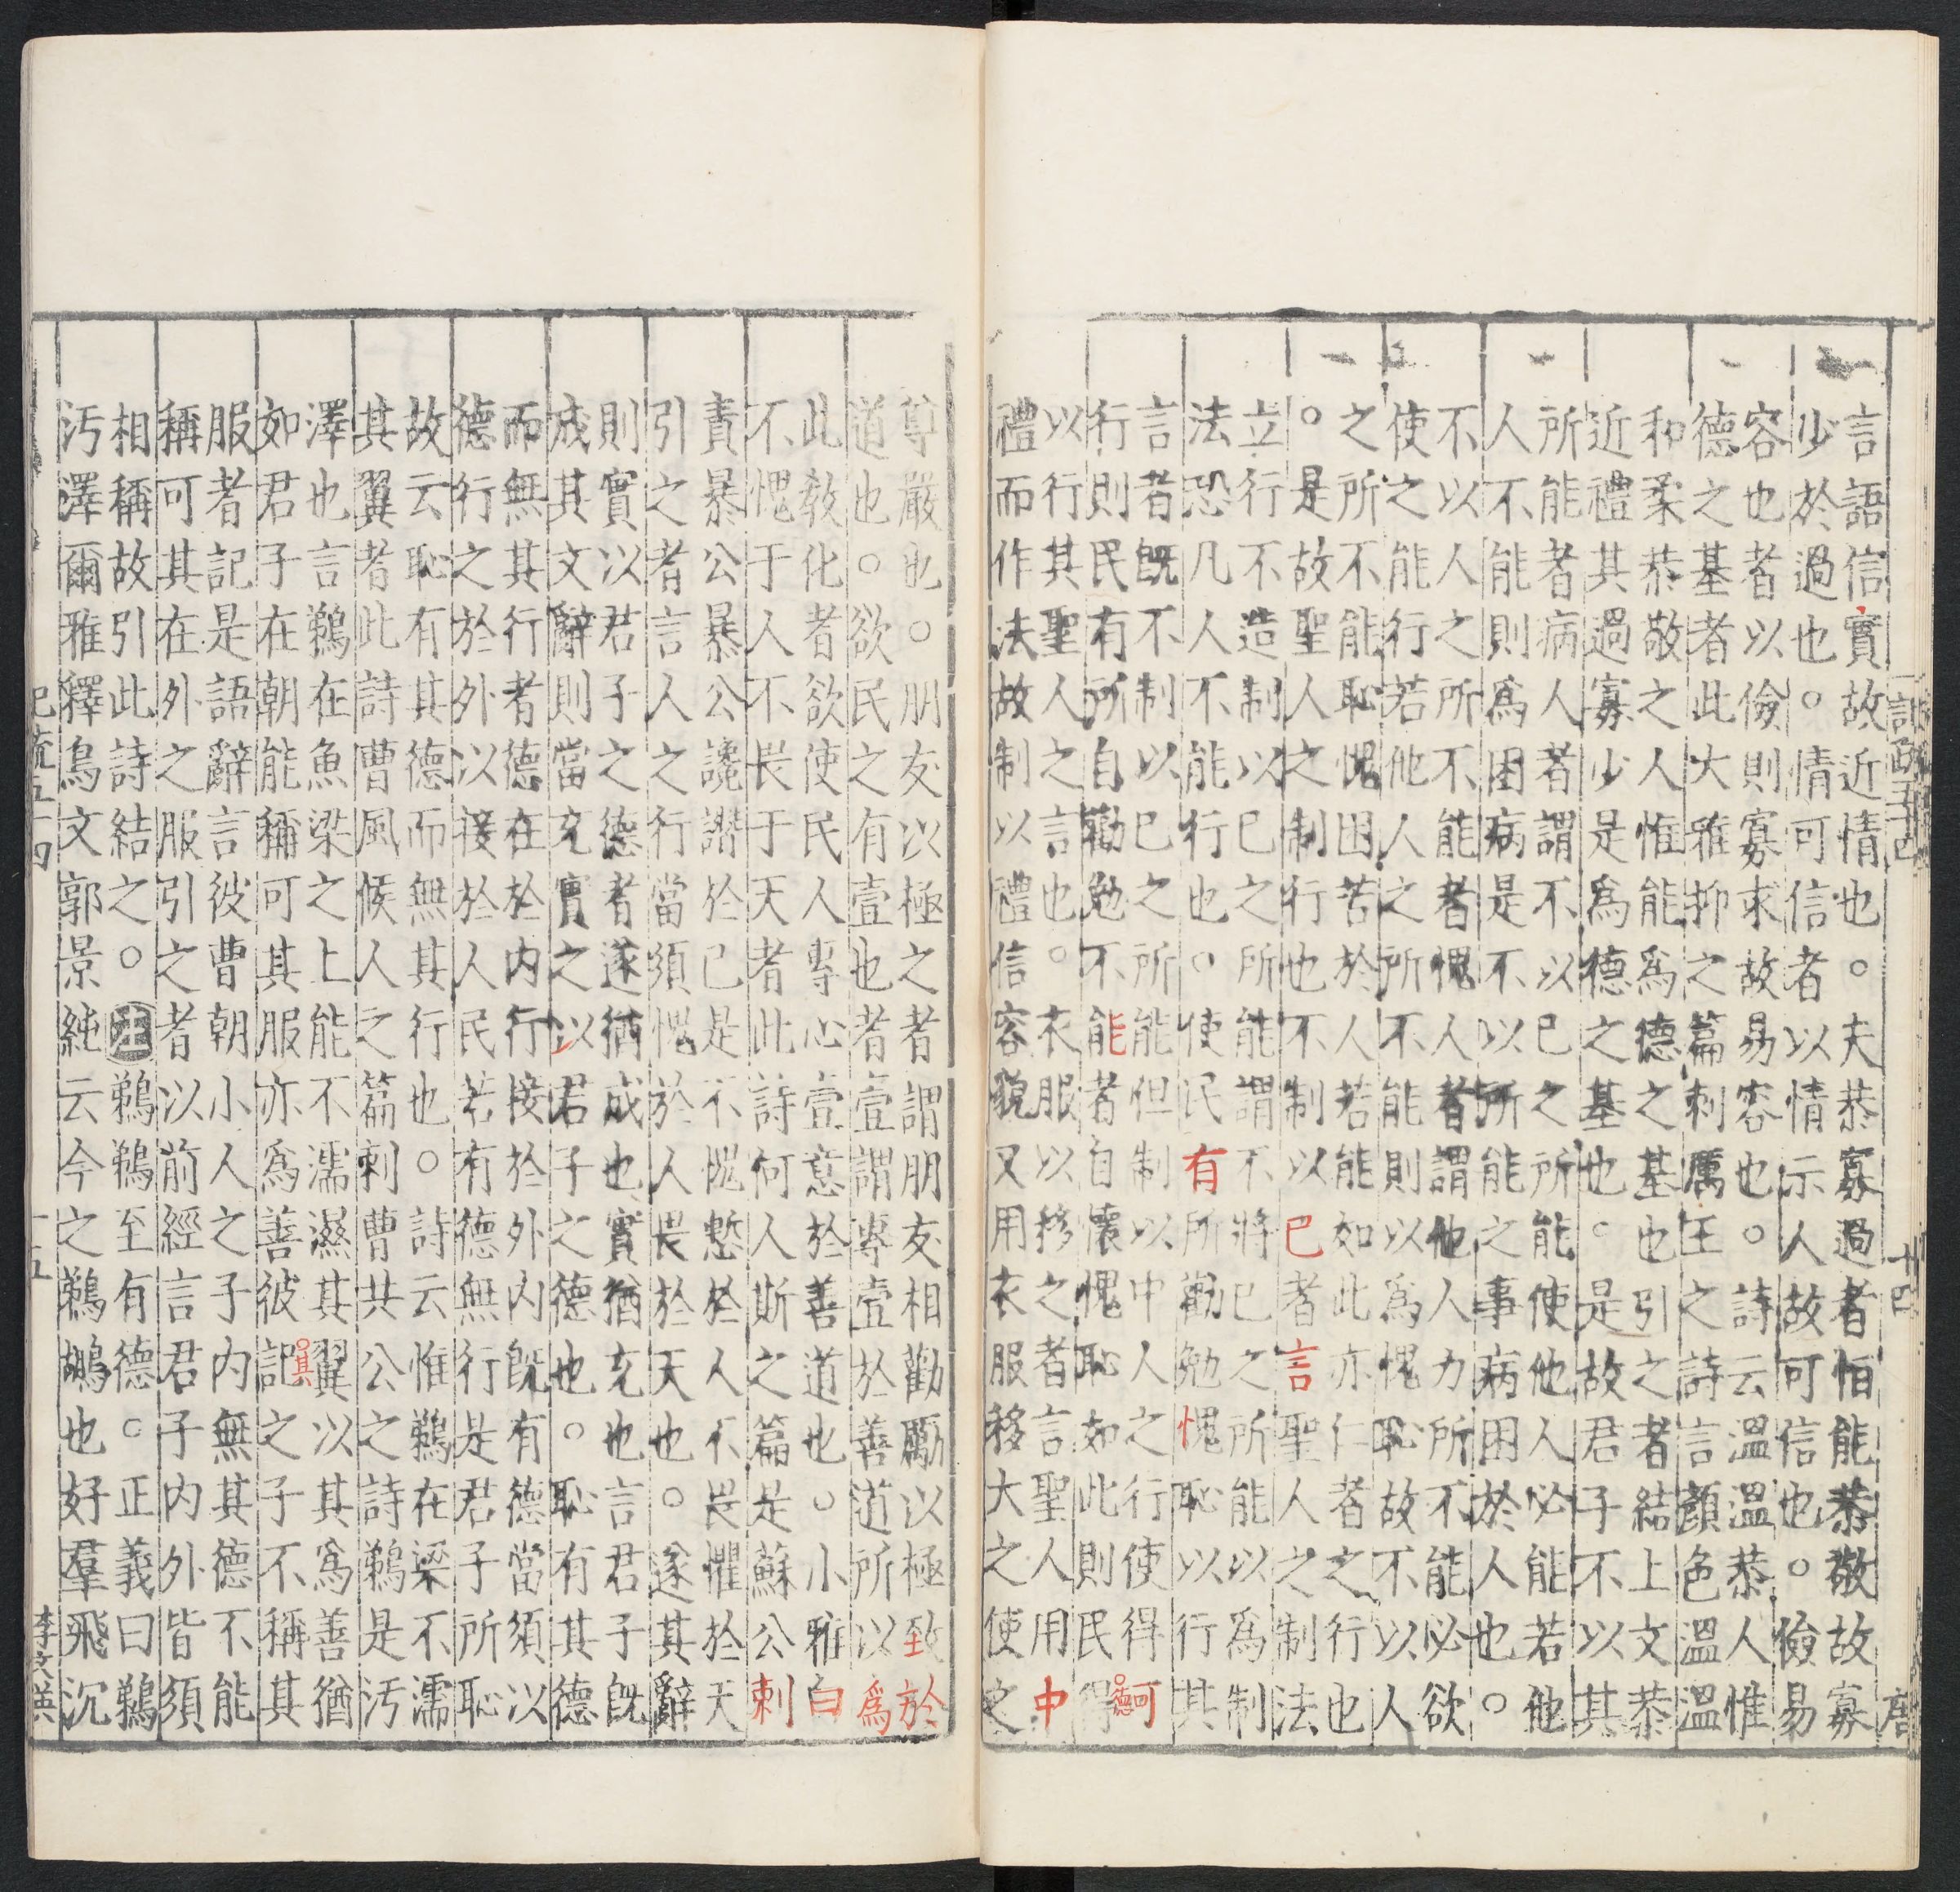 記疏五十四 十四 唐
言語信實故近情也。夫恭寡過者怕能恭敬故寡
少於過也。情可信者以情示人故可信也。儉易
容也者以儉則寡求故易容也。詩云溫溫恭人惟
德之基者此大雅抑之篇刺厲王之詩言顏色溫溫
和柔恭敬之人惟能爲德之基也引之者結上文恭
近禮其過寡少是爲德之基也。是故君子不以其
所能者病人者謂不以已之所能使他人必能若他
人不能則爲困病是不以所能之事病困於人也。
不以人之所不能者愧人者謂他人力所不能必欲
使之能行若他人之所不能則以爲愧恥故不以人
之所不能恥愧困苦於人若能如此亦仁者之行也
。是故聖人之制行也不制以巳者言聖人之制法
立行不造制以已之所能謂不將已之所能以爲制
法恐凡人不能行也。使民有所勸勉愧恥以行其
言者旣不制以巳之所能但制以中人之行使得可
行則民有所自勸勉不能者自懷愧恥如此則民得
以行其聖人之言也。衣服以移之者言聖人用中
禮而作法故制以禮信容貌又用衣服移大之使之
尊嚴也。朋友以極之者謂朋友相勸勵以極致於
道也。欲民之有壹也者壹謂專壹於善道所以爲
此敎化者欲使民人專心壹意於善道也。小雅曰
不愧于人不畏于天者此詩何人斯之篇是蘇公刺
責暴公暴公讒譖於已是不愧慙於人不畏懼於天
引之者言人之行當須愧於人畏於天也。遂其辭
則實以君子之德者遂猶成也實猶充也言君子旣
成其文辭則當充實之以君子之德也。恥有其德
而無其行者德在於內行接於外內旣有德當須以
德行之於外以接於人民若有德無行是君子所恥
故云恥有其德而無其行也。詩云惟鵜在梁不濡
其翼者此詩曹風候人之篇刺曹共公之詩鵜是污
澤也言鵜在魚梁之上能不濡濕其翼以其爲善猶
如君子在朝能稱可其服亦爲善彼記其之子不稱其
服者記是語辭言彼曹朝小人之子內無其德不能
稱可其在外之服引之者以前經言君子內外皆須
相稱故引此詩結之。注鵜鵜至有德。正義曰鵜
污澤爾雅釋鳥文郭景純云今之鵜鶘也好羣飛沉
記疏五十四 十五 李文英